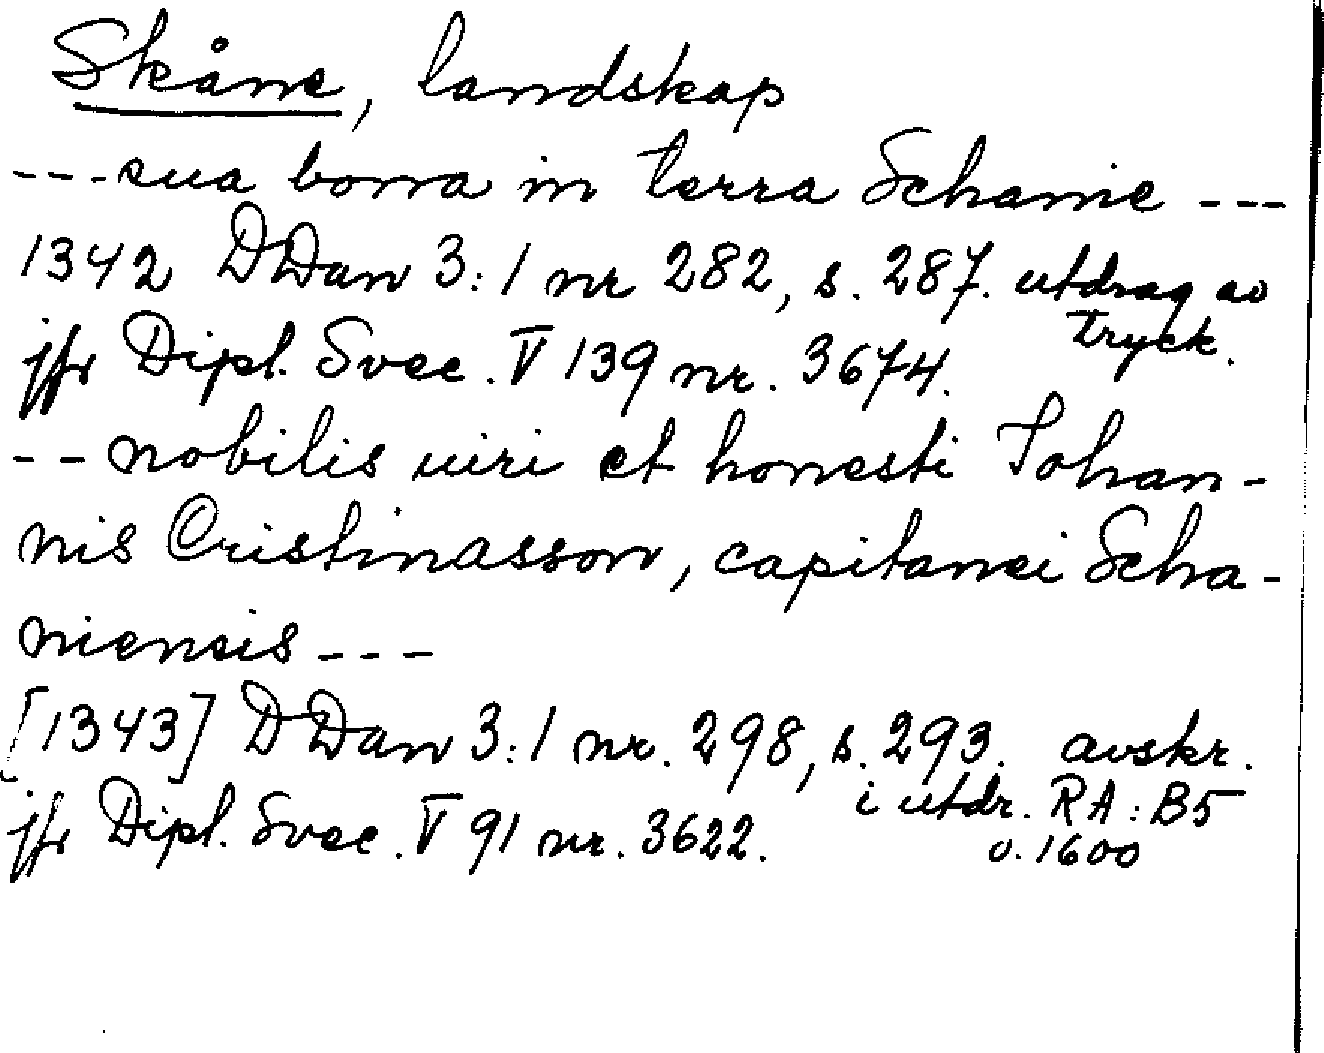 Skåne, landskap
---sua bona in terra Schanie ---
1342 DDan 3:1 nr 282, s. 287. utdrag av
tryck.
jfr Dipl. Svec. V 139 nr. 3674.
-- nobilis uiri et honesti Johan-
nis Cristinasson, capitanei Scha-
niensis ---
[1343] DDan 3:1 nr. 298, s. 293. avskr.
i utdr. RA: B5
jfr Dipl. Svec. V 91 nr. 3622.
o. 1600